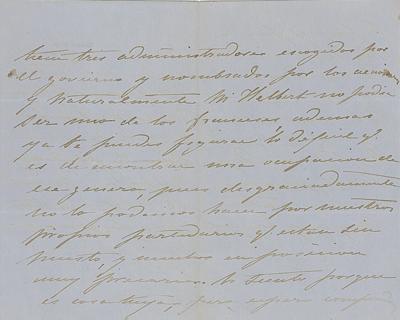 tiene tres administradores escogidos por
el govierno y nombrados por los
y naturalmente Mr Halbert no podia
ser uno de los franceses ademas
ya te puedes figurar lo dificil q.
es de encontrar una ocupacion de
ese genero, pues desgraciadamente
no lo podemos hacer por nuestros
propios partidarios q. estan sin
puesto, y muchos en posicion
muy precaria. lo siento porque
es cosa tuya, pero